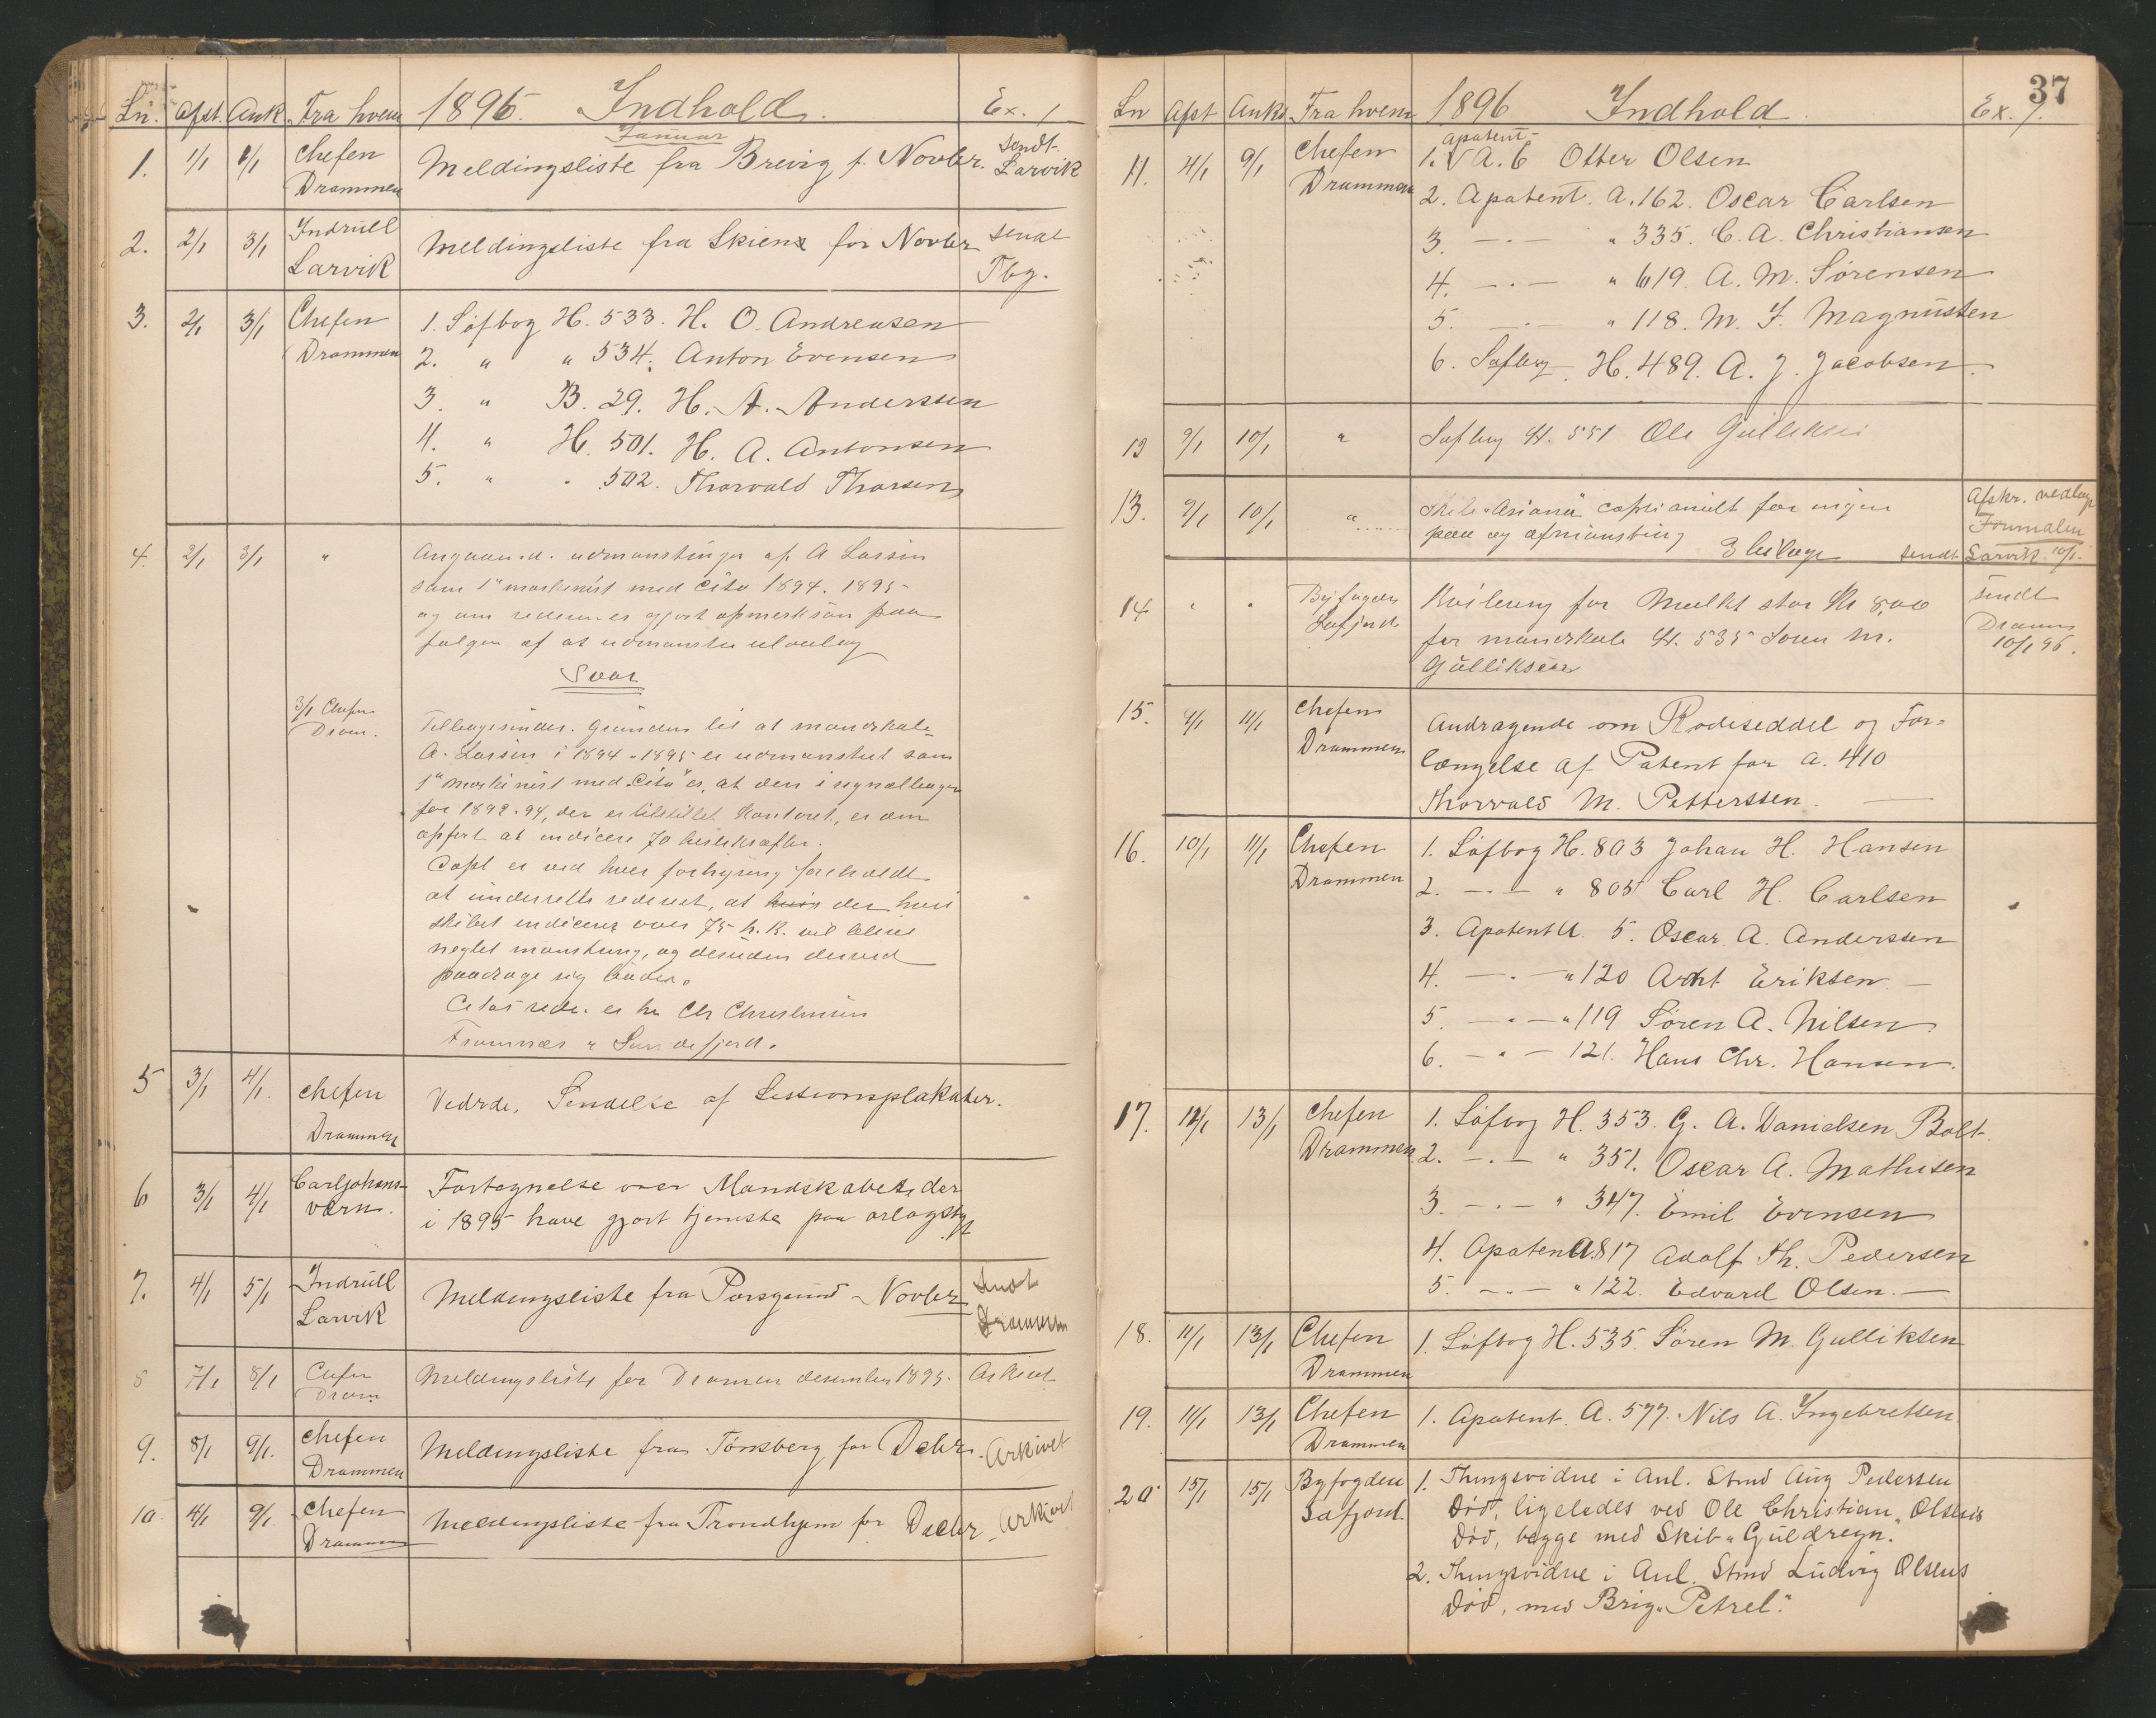 Ln. Afst. Ank. Fra hvem 1896. Indhold. Ex. 1
Januar
1. 1/1 1/1 Chefen Drammen Meldingsliste fra Brevig f. Novbr. sendt Larvik
2. 2/1 3/1 Indrull Larvik Meldingsliste fra Skien for Novbr sendt Tbg.
3. 2/1 3/1 Chefen Drammen 1. Søfbog H. 533. H. O. Andreasen
2. " " 534. Anton Evensen
3. " B. 29. H. A. Anderssen
4. " H. 501. H. A. Antonsen
5. " " 502. Thorvald Thorsen
4. 2/1 3/1 " Angaaend. udmønstringen af A Lassen
som 1ste maskinist med Cito 1894. 1895
og om rederen er gjort opmerksom paa
følgen af at udmønstre
Svar
3/1 Chefen Dram.
Tilbagesendes. Grunden til at mandskab
A. Lassen i 1894-1895 er udmønstret som
1ste Maskinist med "Cito" er, at den i
for 1892-94, der er tilstillet Kontoret, er den
opført at indicere 70 hestekræfter.
Capt er ved hver forhyring foreholdt
at underrette rederiet, at der hvis
skibet indicerer over 75 h.K. vil blive
neglet mønstring, og desuden derved
paadrage sig bøder.
Citos reder er hr Chr Christensen
Framnæs " Sandefjord.
5 3/1 4/1. Chefen Drammen Vedrde. Sendelse af Sessionsplakater.
6 3/1 4/1 Carljohans-
værn. Fortegnelse over Mandskaber der
i 1895 have gjort tjeneste paa orlogstgt
7. 4/1 5/1 Indrull Larvik Meldingsliste fra Porsgrund - Novbr sendt Drammen
8 7/1 8/1 Chefen Dram Meldingsliste for Dramen desember 1895. Arkivet
9. 8/1 9/1. Chefen Drammen Meldingsliste fra Tønsberg for Decbr. Arkivet
10. 4/1 9/1. Chefen Drammen Meldingsliste fra Trondhjem for Decbr Arkivet
37
Ln Afst Ank. Fra hvem 1896 Indhold. Ex. 1.
11. 4/1 9/1 Chefen Drammen 1. Apatent A. 6 Otter Olsen
2. Apatent. A. 162. Oscar Carlsen
3. — . — " 335. C. A. Christiansen
4. — . — " 619. A. M. Sørensen
5. — . — " 118. M. F. Magnussen
6. Søfbog H. 489. A. J. Jacobsen.
12 9/1 10/1 " Søfbog H. 551 Ole Gulliksen
13. 9/1 10/1 " Skib "Asiana"
paa og afmønstring
3 bilage sendt Larvik 10/1.
Afskr. vedlagt Journalen
14 " " Byfogden Safjord Kvittering for Mulkt stor Kr 8,00
for mandskab H. 535 Søren M.
Gulliksen
sendt Dramm 10/1 96.
15. 9/1 11/1 Chefen Drammen Andragende om Rodeseddel og For-
længelse af Patent for A. 410
Thorvald M. Petterssen.
16. 10/1 11/1 Chefen Drammen 1. Søfbog H. 803 Johan H. Hansen
2. — . — " 805 Carl H. Carlsen
3. Apatent A. 5. Oscar A. Anderssen
4. — . — " 120 Arnt Eriksen
5. — . — " 119 Søren A. Nilsen
6. — . — 121. Hans Chr. Hansen.
17. 12/1 13/1 Chefen Drammen 1. Søfbog H. 353. G. A. Danielsen Bolt.
2. — . — " 351. Oscar A. Mathisen
3. — . — " 347. Emil Evensen
4. Apatent A. 817 Adolf Th. Pedersen
5. — . — " 122. Edvard Olsen.
18. 11/1 13/1 Chefen Drammen 1. Søfbog H. 535. Søren M. Gulliksen
19. 11/1 13/1 Chefen Drammen 1. Apatent. A. 577. Nils A. Ingebretsen.
20 15/1 15/1 Byfogden Safjord. 1. Thingsvidne i Anl. Stmd Aug Pedersen
Død, ligeledes ved Ole Christian Olsens
Død, begge med Skib "Guldregn".
2. Thingsvidne i Anl. Stmd Ludvig Olsens
Død, med Brig "Petrel".